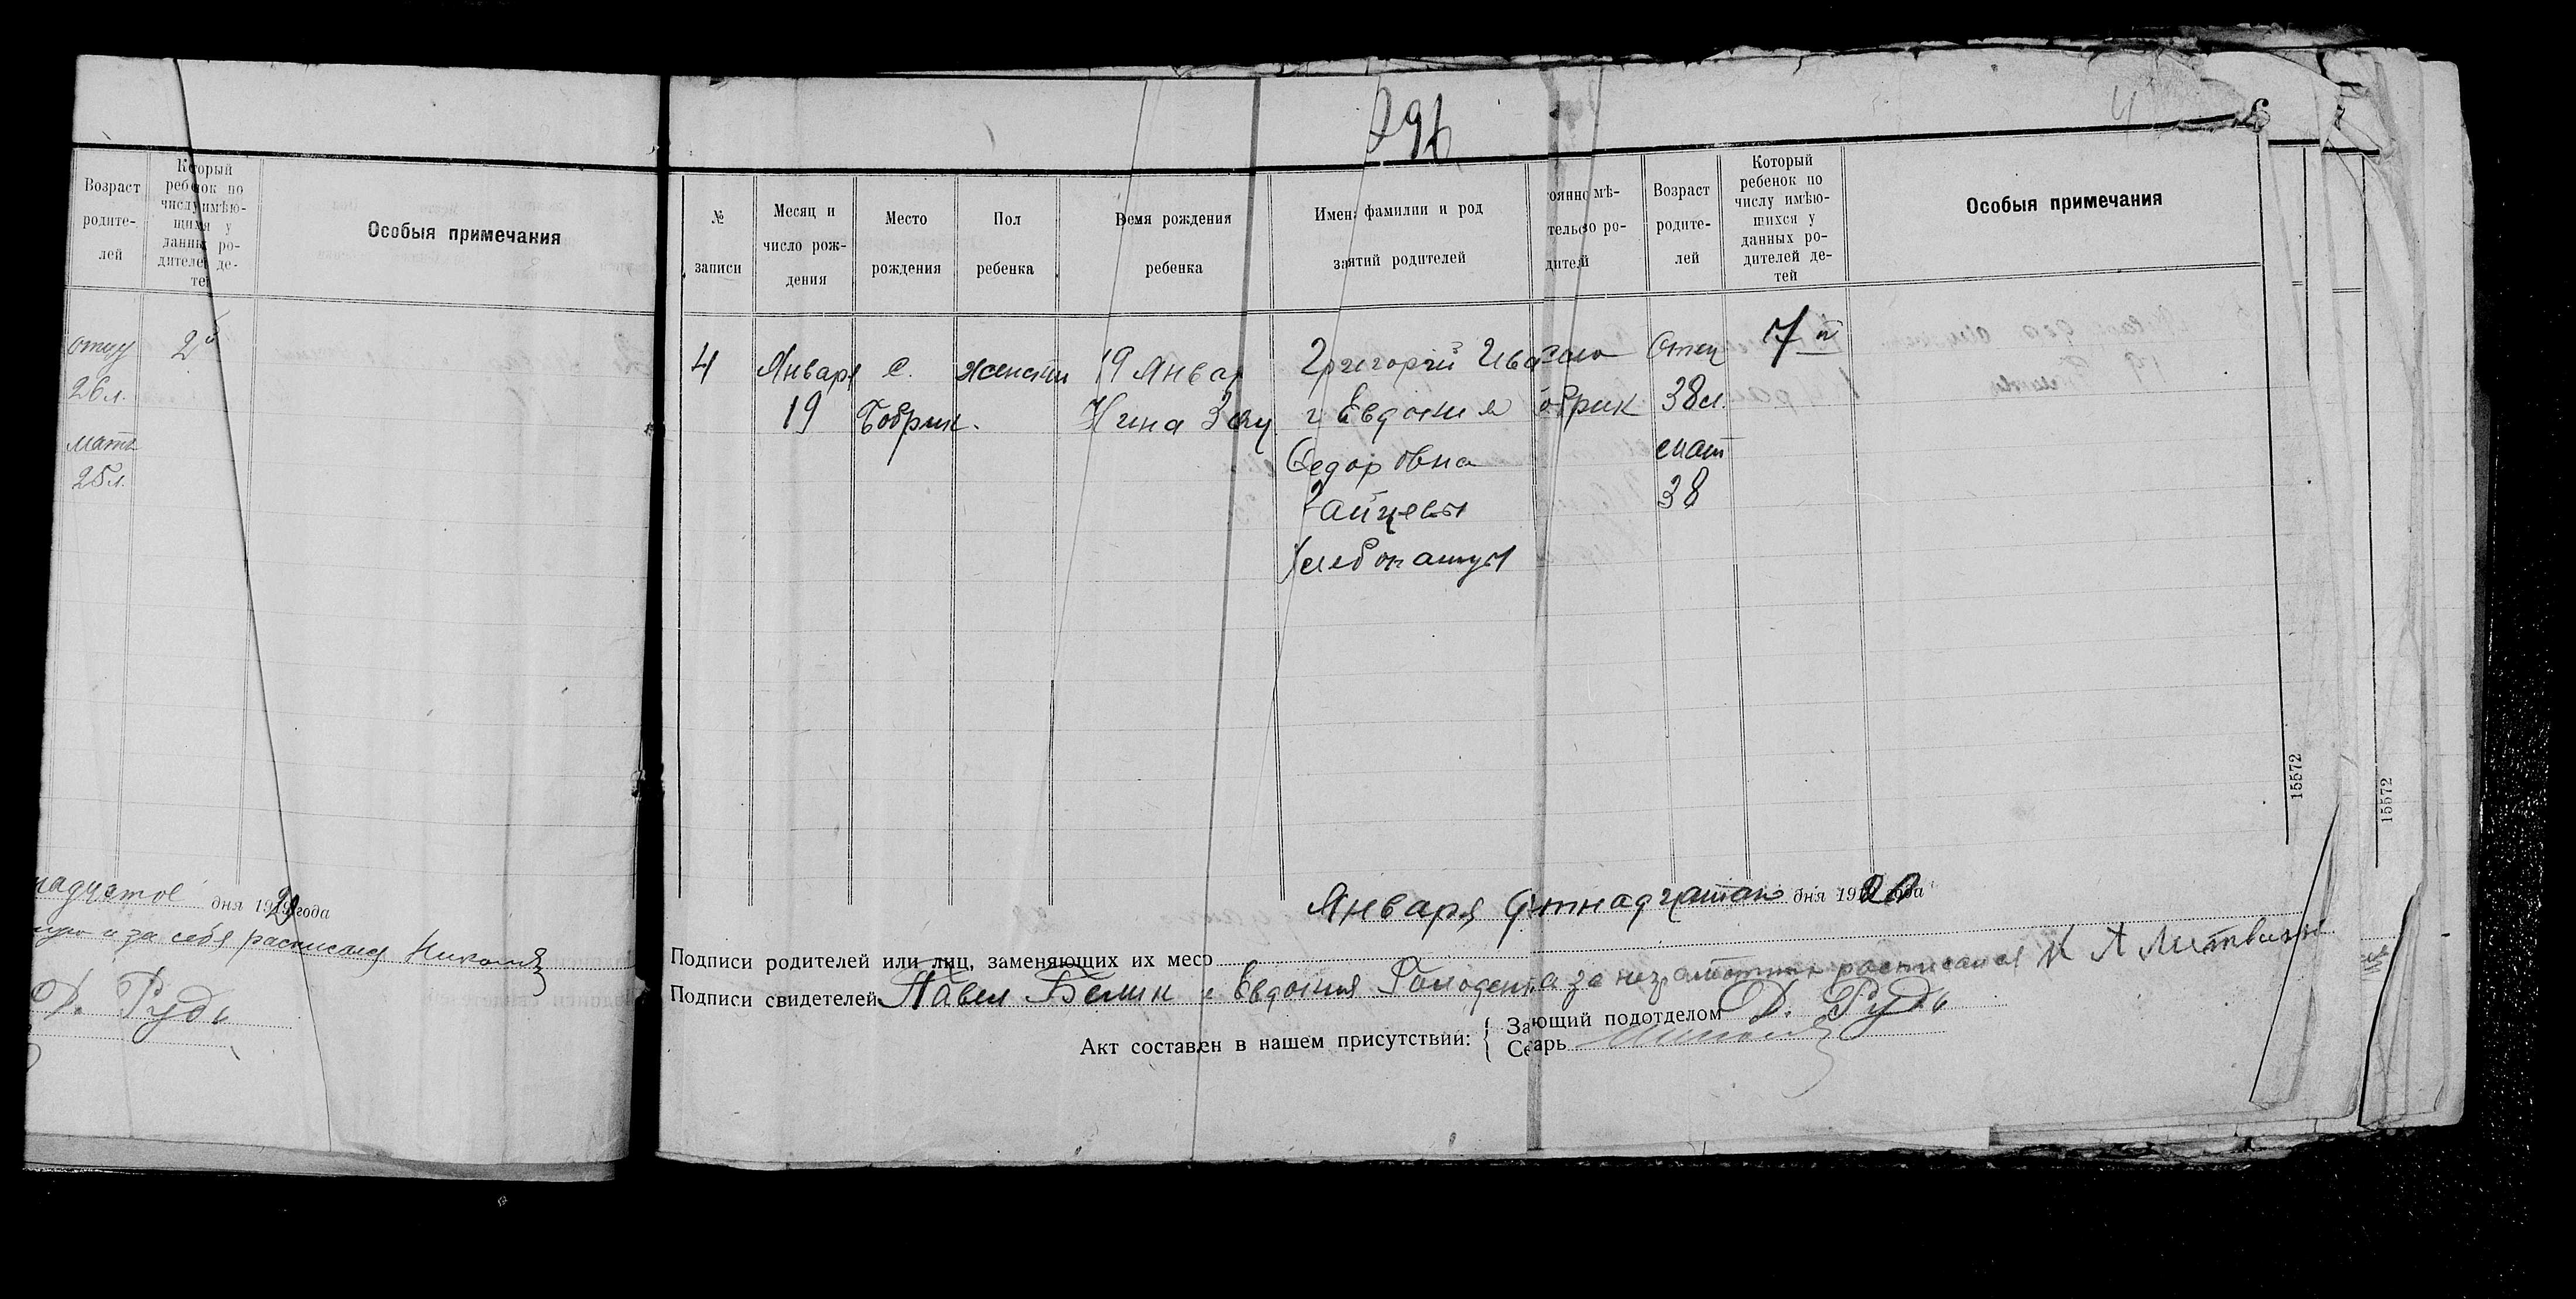 Возраст
родите-
лей
Который
ребенок по
числу имѣю-
щихся у
данных ро-
дителей де-
тей
Особыя примечания
отцу
26 л.
мать
25 л.
2й
надцатое дня 1920 года
и за себя расписался
Д. Рудь
296
4
№
записи
Месяц и
число рож-
дения
Место
рождения
Пол
ребенка
Время рождения
ребенка
Имена фамилии и род
занятий родителей
оянно мѣ-
тельсво ро-
дителей
Возраст
родите-
лей
Который
ребенок по
числу имѣю-
щихся у
данных ро-
дителей де-
тей
Особыя примечания
4
Января
19
с.
Бобрик.
женски
19 Январ
Нина Зайц
Григорий Ива
и Евдокия
Федоровна
Зайцевы
Хлебопашцы
село
обрик
Отец
38 л.
мат
38
7й
15572
15572
Января дня 1920 года
Подписи родителей или лиц, заменяющих их месо
Подписи свидетелей Павел Белик и Евдокия за неграмотных расписался
Акт составлен в нашем присутствии:
Зающий подотделом Д. Рудь
Сеарь